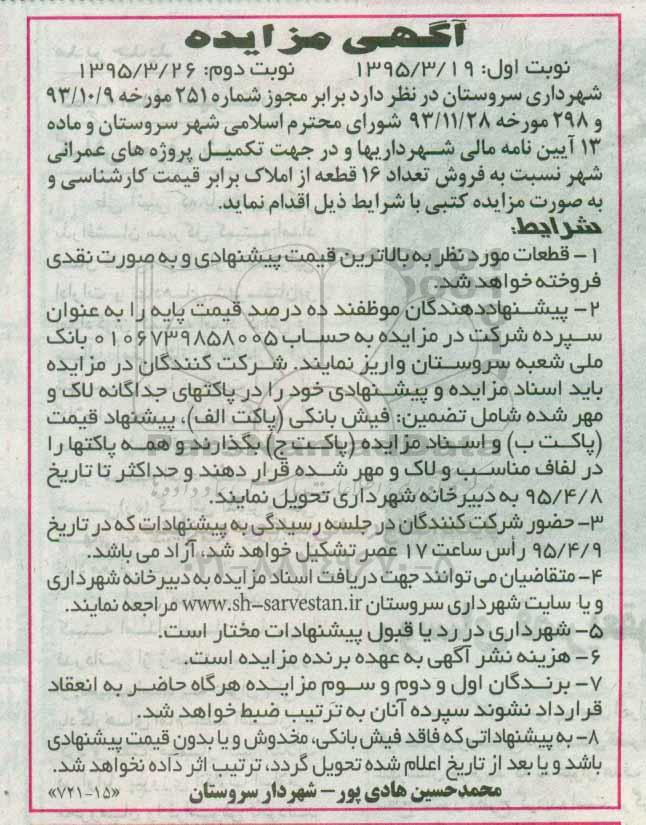 آگهی مزایده
نوبت اول: ۱۳۹۵/۳/۱۹ نوبت دوم: ۱۳۹۵/۳/۲۶
شهرداری سروستان در نظر دارد برابر مجوز شماره ۲۵۱ مورخه ۹۳/۱۰/۹
و ۲۹۸ مورخه ۹۳/۱۱/۲۸ شورای محترم اسلامی شهر سروستان و ماده
۱۳ آیین نامه مالی شهرداریها و در جهت تکمیل پروژه های عمرانی
شهر نسبت به فروش تعداد ۱۶ قطعه از املاک برابر قیمت کارشناسی و
به صورت مزایده کتبی با شرایط ذیل اقدام نماید.
شرایط:
۱- قطعات مورد نظر به بالاترین قیمت پیشنهادی و به صورت نقدی
فروخته خواهد شد.
۲- پیشنهاددهندگان موظفند ده درصد قیمت پایه را به عنوان
سپرده شرکت در مزایده به حساب ۰۱۰۶۷۳۹۸۵۸۰۰۵ بانک
ملی شعبه سروستان واریز نمایند. شرکت کنندگان در مزایده
باید اسناد مزایده و پیشنهادی خود را در پاکتهای جداگانه لاک و
مهر شده شامل تضمین: فیش بانکی (پاکت الف)، پیشنهاد قیمت
(پاکت ب) و اسناد مزایده (پاکت ج) بگذارند و همه پاکتها را
در لفاف مناسب و لاک و مهر شده قرار دهند و حداکثر تا تاریخ
۹۵/۴/۸ به دبیرخانه شهرداری تحویل نمایند.
۳- حضور شرکت کنندگان در جلسه رسیدگی به پیشنهادات که در تاریخ
۹۵/۴/۹ رأس ساعت ۱۷ عصر تشکیل خواهد شد، آزاد می باشد.
۴- متقاضیان می توانند جهت دریافت اسناد مزایده به دبیرخانه شهرداری
و یا سایت شهرداری سروستان www.sh-sarvestan.ir مراجعه نمایند.
۵- شهرداری در رد یا قبول پیشنهادات مختار است.
۶- هزینه نشر آگهی به عهده برنده مزایده است.
۷- برندگان اول و دوم و سوم مزایده هرگاه حاضر به انعقاد
قرارداد نشوند سپرده آنان به ترتیب ضبط خواهد شد.
۸- به پیشنهاداتی که فاقد فیش بانکی، مخدوش و یا بدون قیمت پیشنهادی
باشد و یا بعد از تاریخ اعلام شده تحویل گردد، ترتیب اثر داده نخواهد شد.
محمدحسین هادی پور- شهردار سروستان «۷۲۱-۱۵»